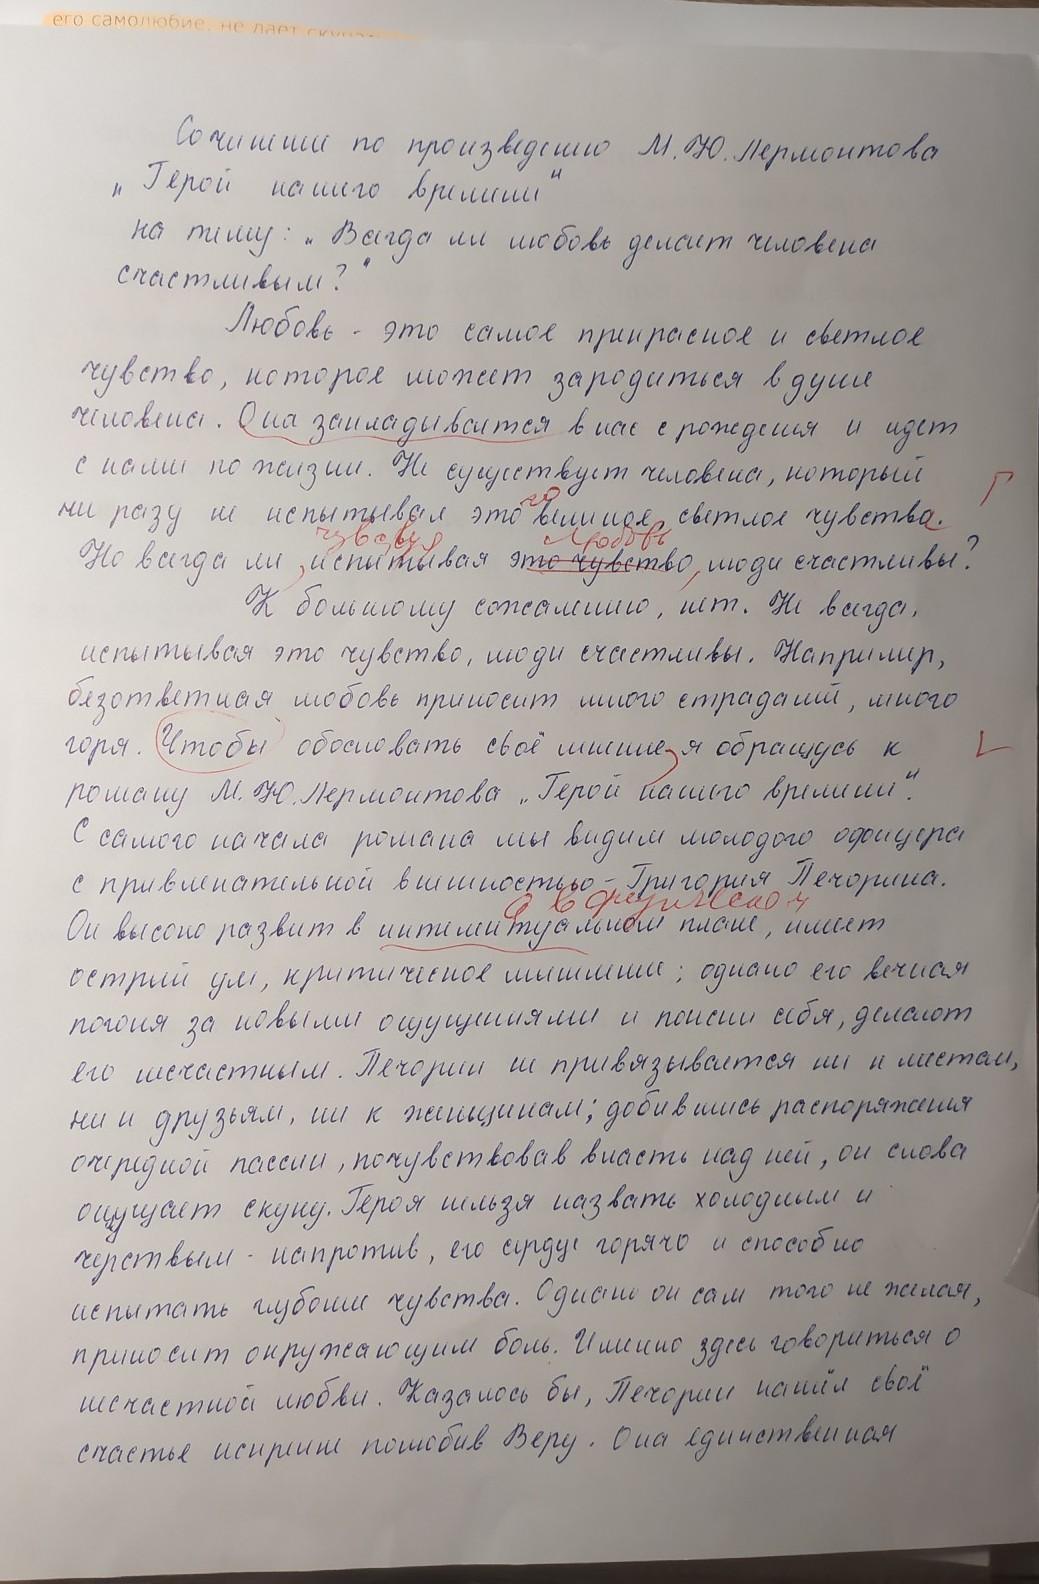 его самолюбие, не дает скучать
Сочинение по произведению М.Ю.Лермонтова
„Герой нашего времени“
на тему: „Всегда ли любовь делает человека
счастливым?“
Любовь - это самое прекрасное и светлое
чувство, которое может зародиться в душе
человека. Она закладывается в нас с рождения и идет
с нами по жизни. Не существует человека, который
го
ни разу не испытывал это великое, светлое чувства.
чувствуя любовь
Но всегда ли, испытывая это чувство, люди счастливы?
К большому сожалению, нет. Не всегда,
испытывая это чувство, люди счастливы. Например,
безответная любовь приносит много страданий, много
горя. Чтобы обосновать своё мнение, я обращусь к
роману М.Ю.Лермонтова „Герой нашего времени“.
С самого начала романа мы видим молодого офицера
с привлекательной внешностью - Григория Печорина.
а в физическом
Он высоко развит в интилектуальном плане, имеет
острый ум, критическое мышление; однако его вечная
погоня за новыми ощущениями и поиски себя, делают
его несчастным. Печорин не привязывается ни к местам,
ни к друзьям, ни к женщинам; добившись распоряжения
очередной пассии, почувствовав власть над ней, он снова
ощущает скуку. Героя нельзя назвать холодным и
черствым - напротив, его сердце горячо и способно
испытать глубокие чувства. Однако он сам того не желая,
приносит окружающим боль. Именно здесь говориться о
несчастной любви. Казалось бы, Печорин нашёл своё
счастье искренне полюбив Веру. Она единственная